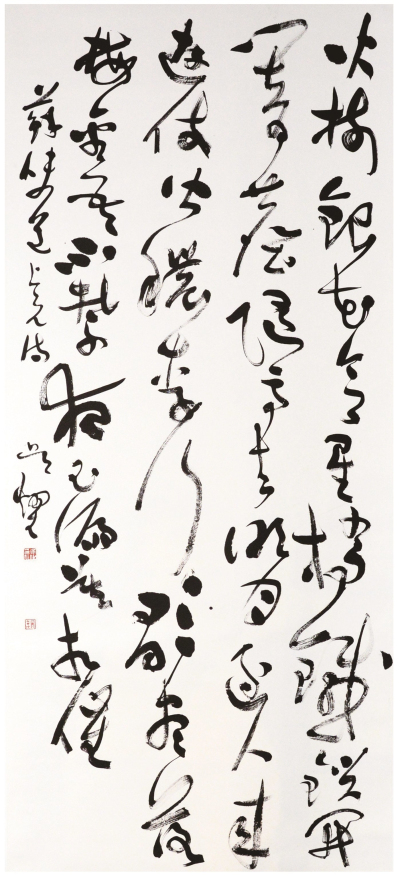 火樹銀花合星橋鐵鎖開
闇塵隨馬去明月逐人来
遊伎皆穠李行歌盡落
梅金吾不禁夜玉漏莫相催
蘇味道上元詩